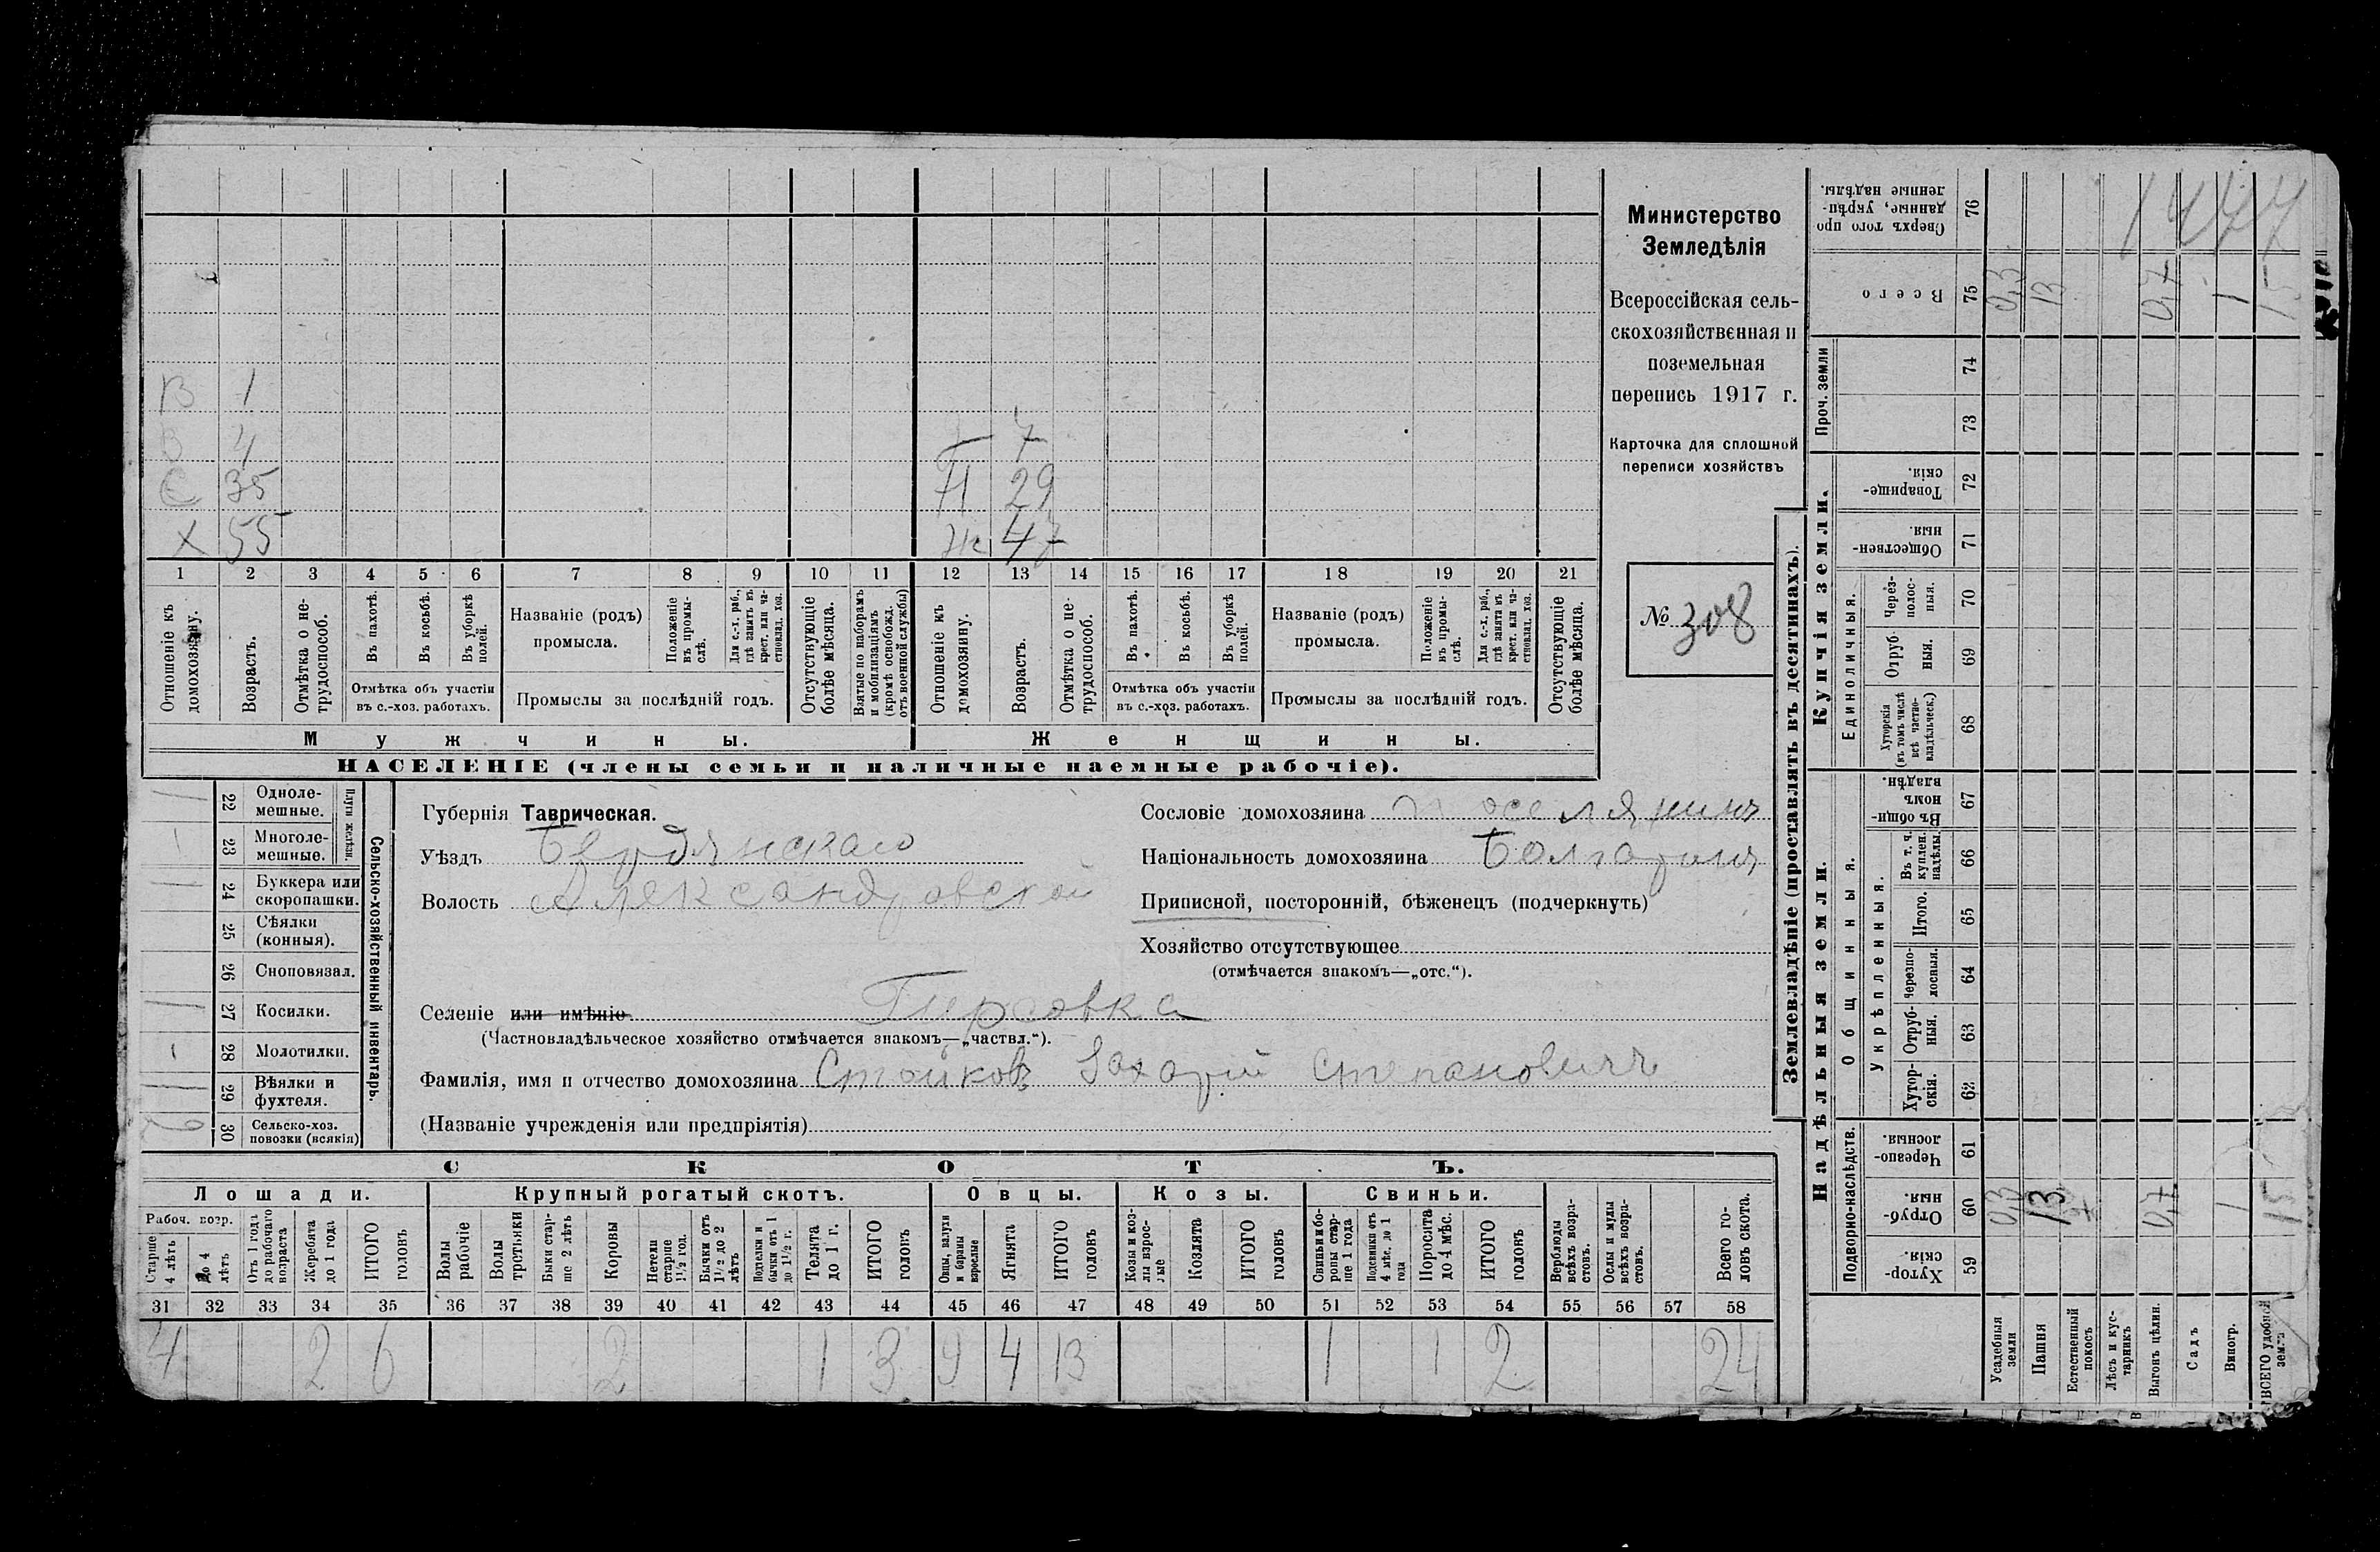 Министерство
Земледѣлія
Всероссійская сель-
скохозяйственная и
поземельная
перепись 1917 г.
Карточка для сплошной
переписи хозяйствъ
№ 308
В 1
В 4
Г 7
С 35
Н 29
Х 55
Ж 47
1 2 3 4 5 6 7 8 9 10 11 12 13 14 15 16 17 18 19 20 21
Отношеніе къ домохозяину.
Возрастъ.
Отмѣтка о не-трудоспособ.
Въ пахотѣ.
Въ косьбѣ.
Въ уборкѣ полей.
Отмѣтка объ участіи
въ с.-хоз. работахъ.
Названіе (родъ)
промысла.
Положеніе въ промы-слѣ.
Для с.-х. раб., гдѣ занятъ въ крест. или ча-стновлад. хоз.
Промыслы за послѣдній годъ.
Отсутствующіе болѣе мѣсяца.
Взятые по наборамъ и мобилизаціямъ (кромѣ освобожд. отъ военной службы)
Отношеніе къ домохозяину.
Возрастъ.
Отмѣтка о не-трудоспособ.
Въ пахотѣ.
Въ косьбѣ.
Въ уборкѣ полей.
Отмѣтка объ участіи
въ с.-хоз. работахъ.
Названіе (родъ)
промысла.
Положеніе въ промы-слѣ.
Для с.-х. раб., гдѣ занята въ крест. или ча-стновлад. хоз.
Промыслы за послѣдній годъ.
Отсутствующіе болѣе мѣсяца.
Мужчины.
Женщины.
НАСЕЛЕНІЕ (члены семьи и наличные наемные рабочіе).
Сельско-хозяйственный инвентарь.
Плуги желѣзн.
22 Одноле-мешные.
23 Многоле-мешные.
24 Буккера или скоропашки.
25 Сѣялки (конныя).
26 Сноповязал.
27 Косилки.
28 Молотилки.
29 Вѣялки и фухтеля.
30 Сельско-хоз. повозки (всякія)
Губернія Таврическая.
Уѣздъ Бердянскаго
Волость Александровской
Селеніе или имѣніе Гирсовка
(Частновладѣльческое хозяйство отмѣчается знакомъ—„частвл.“).
Фамилія, имя и отчество домохозяина Стойковъ Захарій Степановичъ
(Названіе учрежденія или предпріятія)
Сословіе домохозяина поселянинъ
Національность домохозяина Болгаринъ
Приписной, посторонній, бѣженецъ (подчеркнуть)
Хозяйство отсутствующее
(отмѣчается знакомъ—„отс.“).
СКОТЪ.
Лошади. Крупный рогатый скотъ. Овцы. Козы. Свиньи.
Рабоч. возр.
Старше 4 лѣтъ
До 4 лѣтъ
Отъ 1 года до рабочаго возраста
Жеребята до 1 года
ИТОГО головъ
Волы рабочіе
Волы третьяки
Быки стар-ше 2 лѣтъ
Коровы
Нетели старше 1½ год.
Бычки отъ 1½ до 2 лѣтъ
Подтелки и бычки отъ 1 до 1½ г.
Телята до 1 г.
ИТОГО головъ
Овцы, валухи и бараны взрослые
Ягнята
ИТОГО головъ
Козы и коз-лы взрос-лые
Козлята
ИТОГО головъ
Свиньи и бо-ровы стар-ше 1 года
Подсвинки отъ 4 мѣс. до 1 года
Поросята до 4 мѣс.
ИТОГО головъ
Верблюды всѣхъ возра-стовъ.
Ослы и мулы всѣхъ возра-стовъ.
Всего го-ловъ скота.
31 32 33 34 35 36 37 38 39 40 41 42 43 44 45 46 47 48 49 50 51 52 53 54 55 56 57 58
4 2 6 2 1 3 9 4 13 1 1 2 24
Землевладѣніе (проставлять въ десятинахъ).
Надѣльныя земли.
Купчія земли.
Проч. земли
Подворно-наслѣдств.
Общинныя.
Укрѣпленныя.
Единоличныя.
Хутор-скія. 59
Отруб-ныя. 60
Черезпо-лосныя. 61
Хутор-скія. 62
Отруб-ныя. 63
Черезпо-лосныя. 64
Итого. 65
Въ т. ч. куплен. надѣлы. 66
Въ общи-номъ владѣн. 67
Хуторскія (въ томъ числѣ всѣ частно-владѣльческ.) 68
Отруб-ныя. 69
Через-полос-ныя. 70
Обществен-ныя. 71
Товарище-скія. 72
73
74
Всего 75
Сверхъ того про-данные, укрѣп-ленные надѣлы. 76
Усадебныя земли 0,3 0,3
Пашня 13 13
Естественный покосъ
Лѣсъ и кус-тарникъ
Выгонъ цѣлин. 0,7 0,7
Садъ
Виногр. 1 1
ВСЕГО удобной земли 15 15